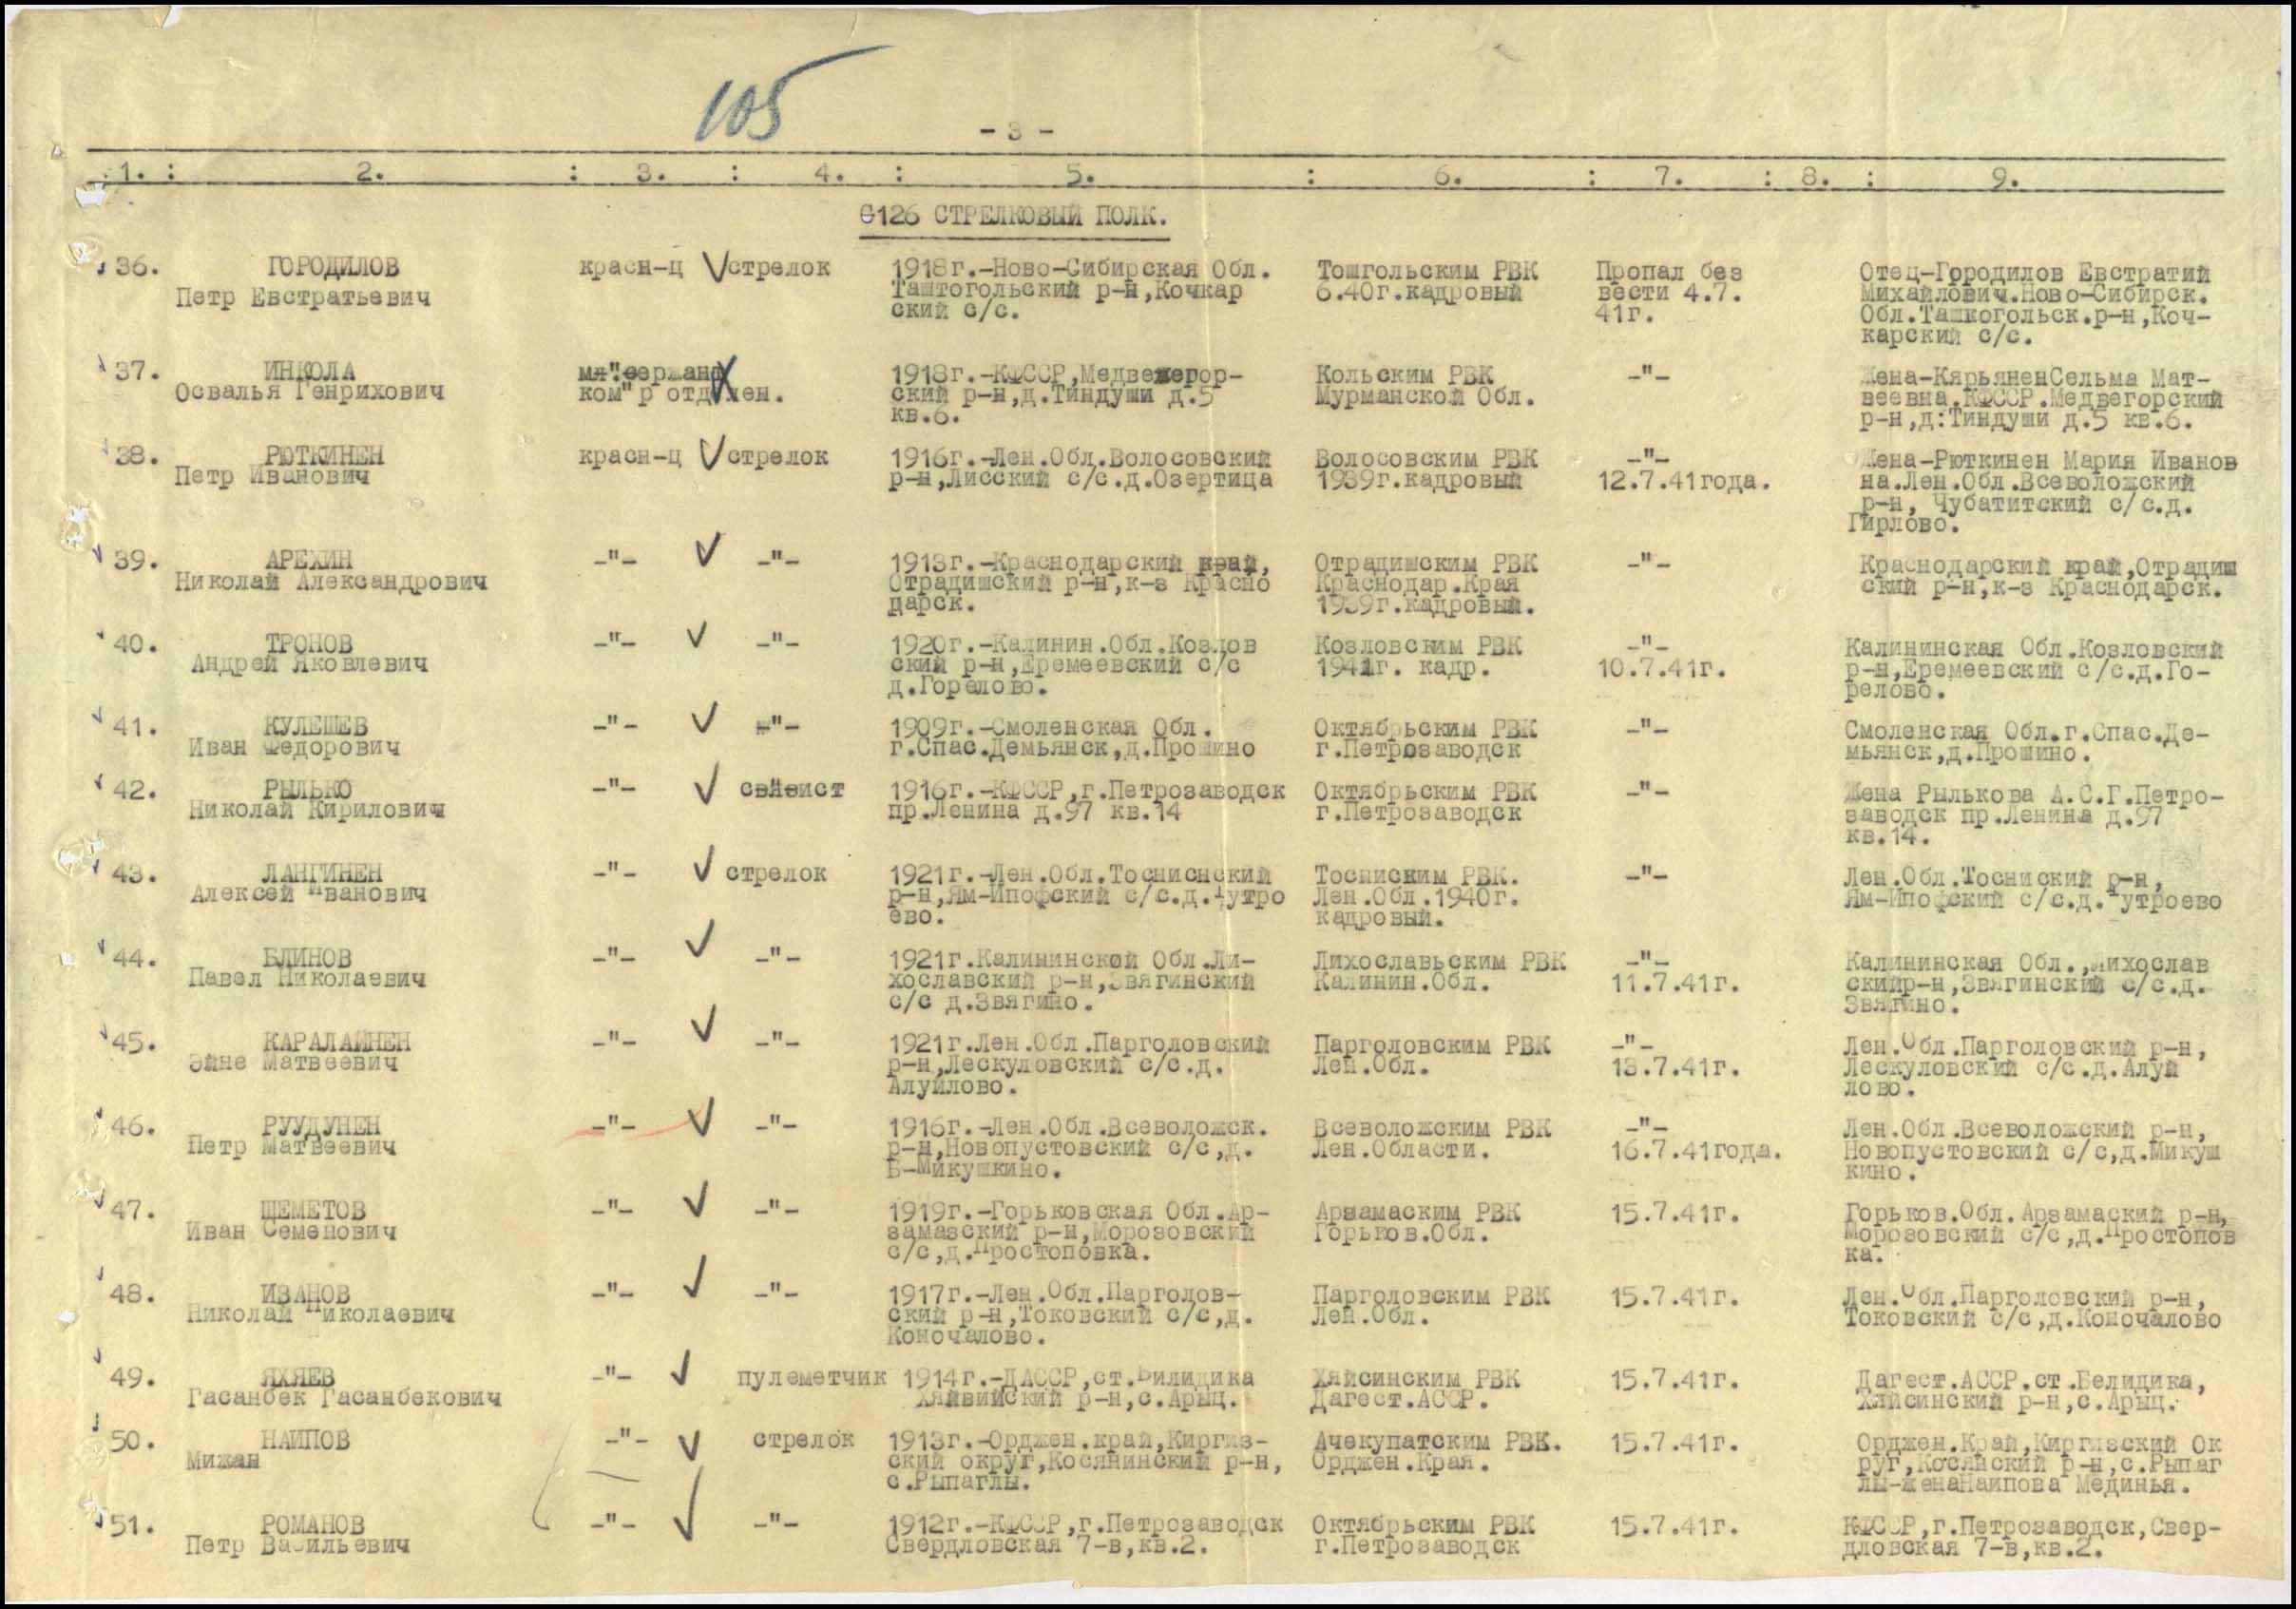 105
- 3 -
1. : 2. : 3. : 4. : 5. : 6. : 7. : 8. : 9.
126 СТРЕЛКОВЫЙ ПОЛК.
36. ГОРОДИЛОВ красн-ц стрелок 1918г.-Ново-Сибирская Обл. Тошгольским РВК Пропал без Отец-Городилов Евстратий
Петр Евстратьевич Таштогольский р-н,Кочкар 6.40г.кадровый вести 4.7. Михайлович.Ново-Сибирск.
ский с/с. 41г. Обл.Ташкогольск.р-н,Коч-
карский с/с.
37. ИНКОЛА мл"сержант 1918г.-КФССР,Медвежегор- Кольским РВК -"- Жена-КярьяненСельма Мат-
Освалья Генрихович ком"р отделен. ский р-н,д.Тиндуши д.5 Мурманской Обл. веевна.КФССР.Медвегорский
кв.6. р-н,д:Тиндуши д.5 кв.6.
38. РЮТКИНЕН красн-ц стрелок 1916г.-Лен.Обл.Волосовский Волосовским РВК -"- Жена-Рюткинен Мария Иванов
Петр Иванович р-н,Лисский с/с.д.Озертица 1939г.кадровый 12.7.41года. на.Лен.Обл.Всеволожский
р-н, Чубатитский с/с.д.
Гирлово.
39. АРЕХИН -"- -"- 1913г.-Краснодарский край, Отрадишским РВК -"- Краснодарский край,Отрадиш
Николай Александрович Отрадишский р-н,к-з Красно Краснодар.Края ский р-н,к-з Краснодарск.
дарск. 1939г.кадровый.
40. ТРОНОВ -"- -"- 1920г.-Калинин.Обл.Козлов Козловским РВК -"- Калининская Обл.Козловский
Андрей Яковлевич ский р-н,Еремеевский с/с 1941г. кадр. 10.7.41г. р-н,Еремеевский с/с.д.Го-
д.Горелово. релово.
41. КУЛЕШЕВ -"- -"- 1909г.-Смоленская Обл. Октябрьским РВК -"- Смоленская Обл.г.Спас.Де-
Иван Федорович г.Спас.Демьянск,д.Прошино г.Петрозаводск мьянск,д.Прошино.
42. РЫЛЬКО -"- 1916г.-КФССР,г.Петрозаводск Октябрьским РВК -"- Жена Рылькова А.С.Г.Петро-
Николай Кирилович пр.Ленина д.97 кв.14 г.Петрозаводск заводск пр.Ленина д.97
кв.14.
43. ЛАНГИНЕН -"- стрелок 1921г.-Лен.Обл.Тосниснский Тосниским РВК. -"- Лен.Обл.Тосниский р-н,
Алексей Иванович р-н,Ям-Ипофский с/с.д. Лен.Обл.1940г. Ям-Ипофский с/с.д.
ево. кадровый.
44. БЛИНОВ -"- -"- 1921г.Калининской Обл.Ли- Лихославьским РВК -"- Калининская Обл.,Лихослав
Павел Николаевич хославский р-н,Звягинский Калинин.Обл. 11.7.41г. скийр-н,Звягинский с/с.д.
с/с д.Звягино. Звягино.
45. КАРАЛАЙНЕН -"- -"- 1921г.Лен.Обл.Парголовский Парголовским РВК -"- Лен.Обл.Парголовский р-н,
Эйне Матвеевич р-н,Лескуловский с/с.д. Лен.Обл. 13.7.41г. Лескуловский с/с.д.Алуй
Алуйлово. лово.
46. РУУДУНЕН -"- -"- 1916г.-Лен.Обл.Всеволожск. Всеволожским РВК -"- Лен.Обл.Всеволожский р-н,
Петр Матвеевич р-н,Новопустовский с/с,д. Лен.Области. 16.7.41года. Новопустовский с/с,д.Микуш
Б-Микушкино. кино.
47. ШЕМЕТОВ -"- -"- 1919г.-Горьковская Обл.Ар- Арзамаским РВК 15.7.41г. Горьков.Обл.Арзамаский р-н,
Иван Семенович замазский р-н,Морозовский Горьков.Обл. Морозовский с/с,д.Простопов
с/с,д.Простоповка. ка.
48. ИВАНОВ -"- -"- 1917г.-Лен.Обл.Парголов- Парголовским РВК 15.7.41г. Лен.Обл.Парголовский р-н,
Николай Николаевич ский р-н,Токовский с/с,д. Лен.Обл. Токовский с/с,д.Коночалово
Коночалово.
49. ЯХЯЕВ -"- пулеметчик 1914г.-ДАССР,ст.Билидика Хяйсинским РВК 15.7.41г. Дагест.АССР.ст.Белидика,
Гасанбек Гасанбекович Хяйвийский р-н,с.Арыц. Дагест.АССР. Хяйсинский р-н,с.Арыц.
50. НАИПОВ -"- стрелок 1913г.-Орджен.край,Киргиз- Ачекупатским РВК. 15.7.41г. Орджен.Край,Киргизский Ок
Мижан ский округ,Косянинский р-н, Орджен.Края. руг,Косянский р-н,с.Рыпаг
с.Рыпаглы. лы-женаНаипова Мединья.
51. РОМАНОВ -"- -"- 1912г.-КФССР,г.Петрозаводск Октябрьским РВК 15.7.41г. КФССР,г.Петрозаводск,Свер-
Петр Васильевич Свердловская 7-в,кв.2. г.Петрозаводск дловская 7-в,кв.2.